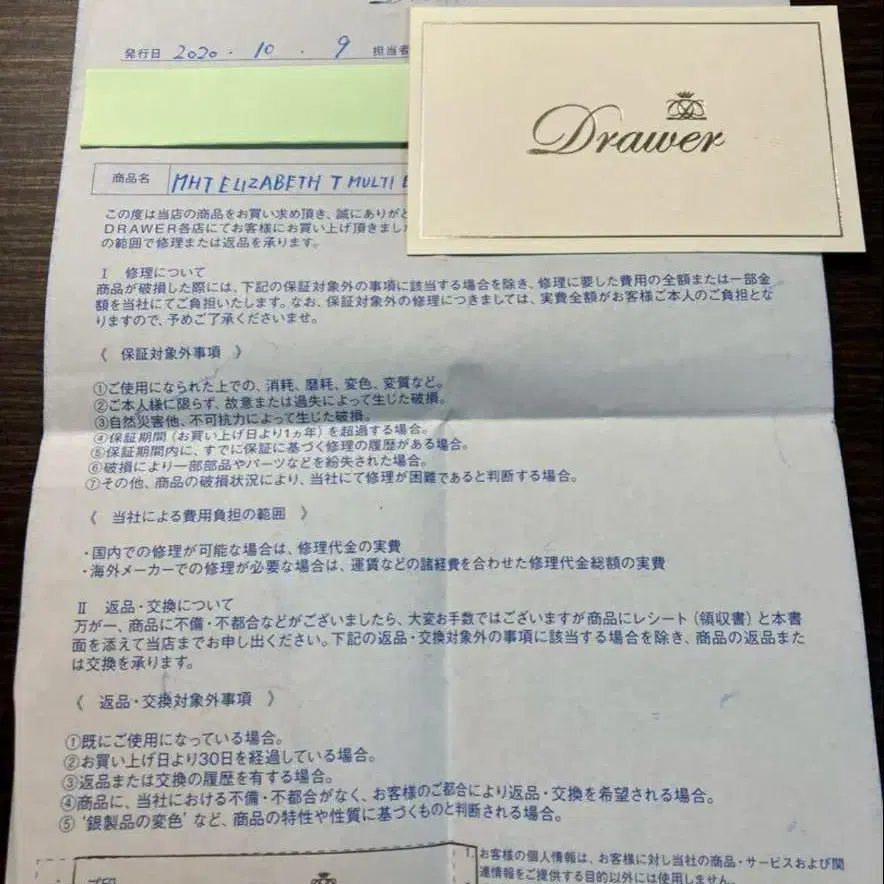 発行日 2020 ・ 10 ・ 9 担当者
Drawer
商品名 MHT ELIZABETH T MULTI
この度は当店の商品をお買い求め頂き、誠にありがと
DRAWER各店にてお客様にお買い上げ頂きまし
の範囲で修理または返品を承ります。
Ⅰ 修理について
商品が破損した際には、下記の保証対象外の事項に該当する場合を除き、修理に要した費用の全額または一部金
額を当社にてご負担いたします。なお、保証対象外の修理につきましては、実費全額がお客様ご本人のご負担とな
りますので、予めご了承くださいませ。
《 保証対象外事項 》
①ご使用になられた上での、消耗、磨耗、変色、変質など。
②ご本人様に限らず、故意または過失によって生じた破損。
③自然災害他、不可抗力によって生じた破損。
④保証期間(お買い上げ日より1ヵ年)を超過する場合。
⑤保証期間内に、すでに保証に基づく修理の履歴がある場合。
⑥破損により一部部品やパーツなどを紛失された場合。
⑦その他、商品の破損状況により、当社にて修理が困難であると判断する場合。
《 当社による費用負担の範囲 》
・国内での修理が可能な場合は、修理代金の実費
・海外メーカーでの修理が必要な場合は、運賃などの諸経費を合わせた修理代金総額の実費
Ⅱ 返品・交換について
万が一、商品に不備・不都合などがございましたら、大変お手数ではございますが商品にレシート(領収書)と本書
面を添えて当店までお申し出ください。下記の返品・交換対象外の事項に該当する場合を除き、商品の返品また
は交換を承ります。
《 返品・交換対象外事項 》
①既にご使用になっている場合。
②お買い上げ日より30日を経過している場合。
③返品または交換の履歴を有する場合。
④商品に、当社における不備・不都合がなく、お客様のご都合により返品・交換を希望される場合。
⑤ '銀製品の変色' など、商品の特性や性質に基づくものと判断される場合。
1. お客様の個人情報は、お客様に対し当社の商品・サービスおよび関
連情報をご提供する目的以外には使用しません。